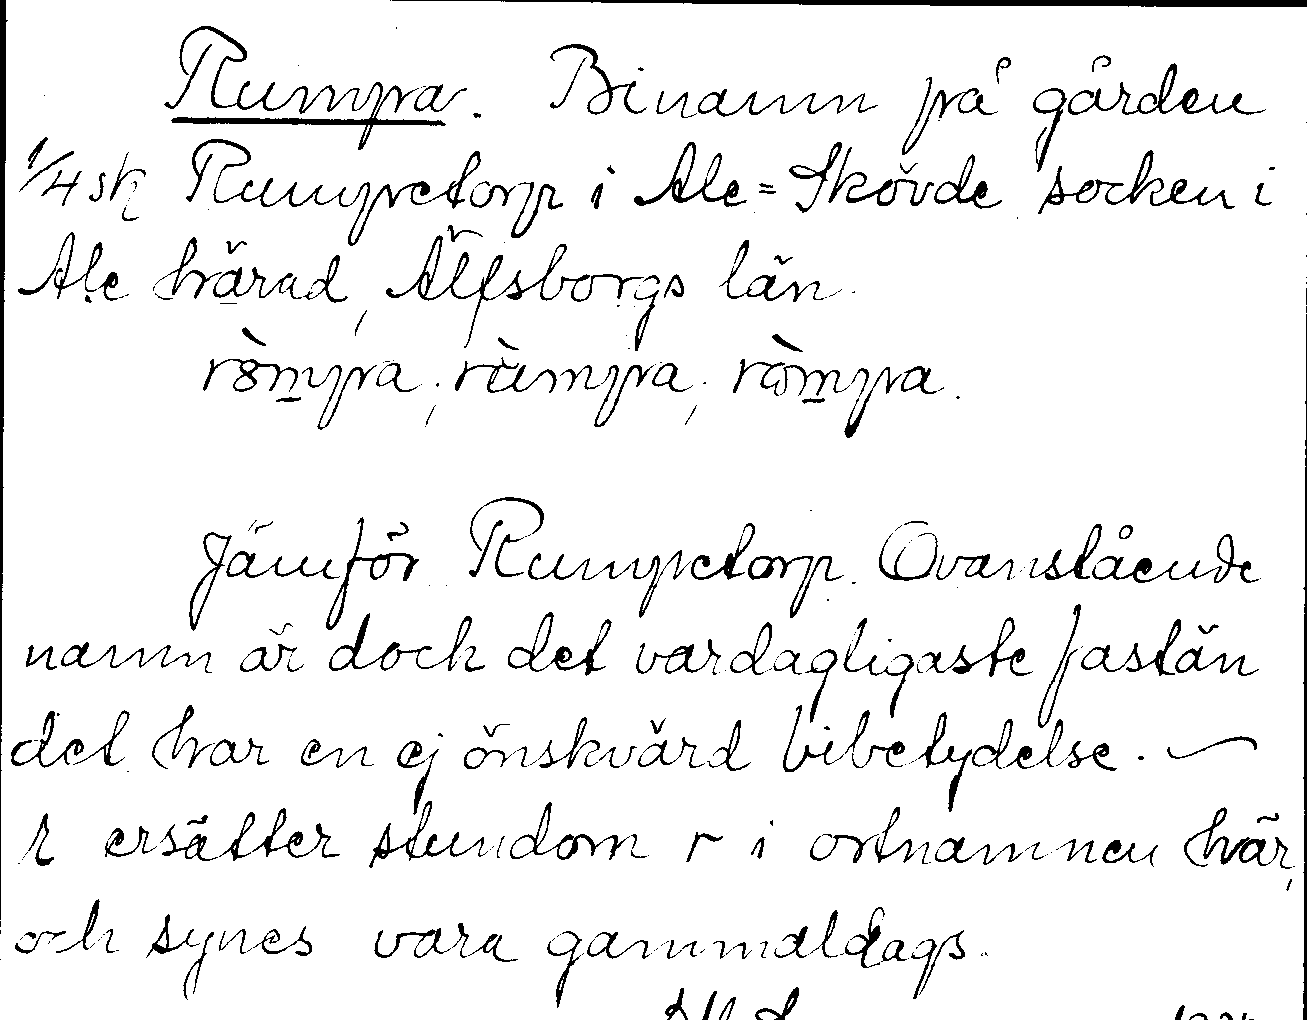 Rumpa. Binamn på gården
1/4 sk Rumpetorp i Ale=Skövde socken i
Ale härad, Älfsborgs län.
römpa, rùmpa, ròmpa.
Jämför Rumpetorp. Ovanstående
namn är dock det vardagligaste fastän
det har en ej önskvärd bibetydelse. —
ersätter stundom r i ortnamnen här,
och synes vara gammaldags.